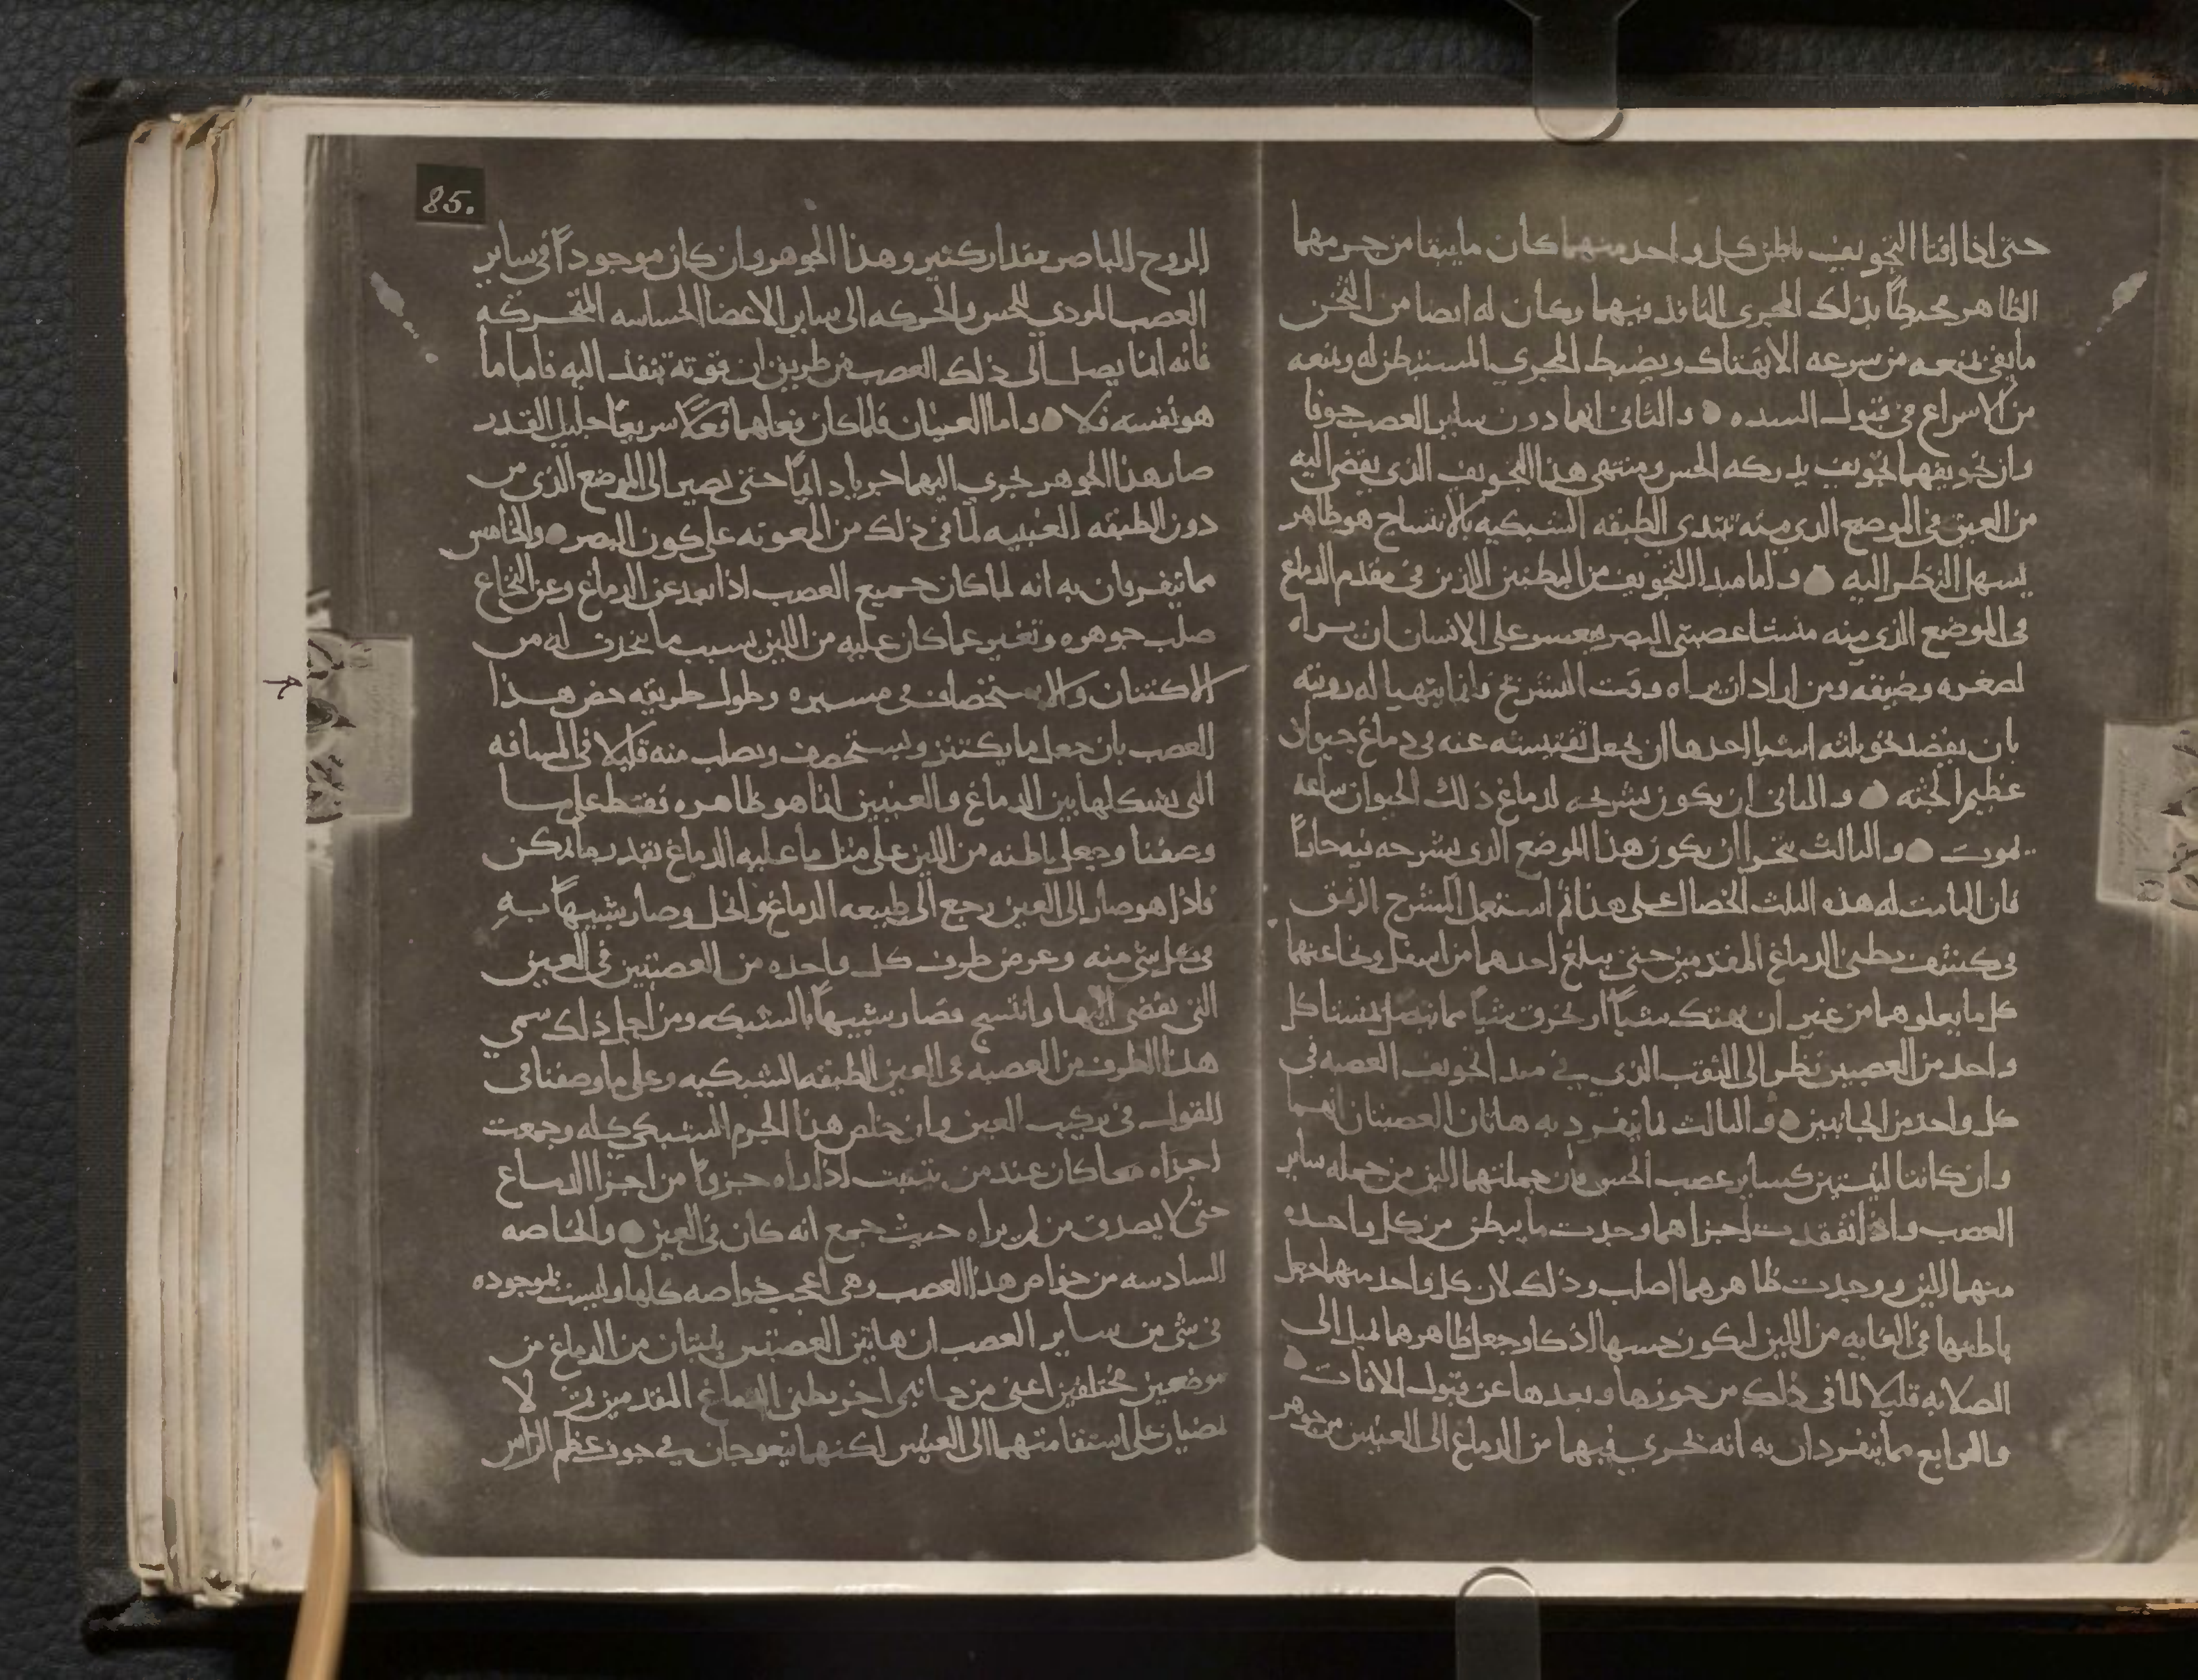 حتى اذا افنا التجويف باطن كل واحد منهما كان ما يبقا من جرمهما
الظاهر محيطاً بذلك المجرى النافذ فيهما وكان له ايضا من الثخن
ما يفي بمنعه من سرعه الانهتاك ويضبط المجرى المستبطن له ويمنعه
من الاسراع في قبول السده والثاني انهما دون ساير العصب جوفا
وان تجويفهما تجويف يدركه الحس ومنتهى هذا التجويف الذى يفضي اليه
من العين في الموضع الذى منه تبتدى الطبقه الشبكيه بالانتساج هو ظاهر
يسهل النظر اليه واما مبدا التجويف من البطنين اللذين في مقدم الدماغ
في الموضع الذى منه منشا عصبتي البصر فيعسر على الانسان ان يراه
لصغره وضيقه ومن اراد ان يراه وقت التشريح فانما يتهيا له رويته
بان يقصد نحو ثلثه اشيا احدها ان يجعل تفتيشه عنه في دماغ حيوان
عظيم الجثه والثاني ان يكون تشريحه لدماغ ذلك الحيوان ساعه
يموت والثالث يتحرا ان يكون هذا الموضع الذى يشرحه فيه حاراً
فان التامت له هذه الثلث الخصال على هذا ثم استعمل المشرح الرفق
في كشف بطني الدماغ المقدمين حتى يبلغ احدهما من اسفل ونحا عنهما
كل ما يعلوهما من غير ان يهتك شياً او يخرق شياً مما يتصل بمنشا كل
واحد من العصبين نظر الى الثقب الذى في مبدا تجويف العصبه في
كل واحد من الجانبين والثالث مما ينفرد به هاتان العصبتان انهما
وان كانتا لينتين كساير عصب الحس فان جملتهما الين من جمله ساير
العصب واذا تفقدت اجزاهما وجدت ما يبطن من كل واحده
منهما الين ووجدت ظاهرهما اصلب وذلك لان كل واحد منهما جعل
باطنها في الغايه من اللين ليكون حسها اذكا وجعل ظاهرهما يميل الى
الصلابه قليلا لما في ذلك من حوزها وبعدها عن قبول الافات
والرابع مما ينفردان به انه يجرى فيهما من الدماغ الى العينين من جوهر
85.
الروح الباصر مقدار كثير وهذا الجوهر وان كان موجوداً في ساير
العصب المودي للحس والحركه الى ساير الاعضا الحساسه المتحركه
فانه انما يصل الى ذلك العصب من طريق ان قوته تنفذ اليه فاما ما
هو نفسه فلا واما العينان فلما كان فعلهما فعلاً سريعاً جليل القدر
صار هذا الجوهر يجرى اليهما جريا دايماً حتى يصير الى الموضع الذى من
دون الطبقه العنبيه لما في ذلك من المعونه على كون البصر والخامس
مما ينفردان به انه لما كان جميع العصب اذا بعد عن الدماغ وعن النخاع
صلب جوهره وتغير عما كان عليه من اللين بسبب ما يحدث له من
الاكتنان والاستخصاف في مسيره وطول طريقه خص هذا
العصب بان جعل ما يكتنز ويستحصف ويصلب منه قليلا في المسافه
التى يسلكها بين الدماغ والعينين انما هو ظاهره فقط على ما
وصفنا وجعل باطنه من اللين على مثل ما عليه الدماغ بقدر ما يمكن
فاذا هو صار الى العين رجع الى طبيعه الدماغ وانحل وصار شبيهاً به
في كل شي منه وعرض طرف كل واحده من العصبتين في العين
التى يفضى اليها وانتسج فصار شبيهاً بالشبكه ومن اجل ذلك سمي
هذا الطرف من العصبه في العين الطبقه الشبكيه وعلى ما وصفنا في
القول في تركيب العين وان خلص هذا الجرم الشبكي كله وجمعت
اجزاه معا كان عند من يتثبت اذا راه جزوًا من اجزا الدماغ
حتى لا يصدق من لم يراه حيث جمع انه كان في العين والخاصه
السادسه من خواص هذا العصب وهي اعجب خواصه كلها وليست بموجوده
في شي من ساير العصب ان هاتين العصبتين ينبتان من الدماغ من
موضعين مختلفين اعنى من جانبي اخر بطني الدماغ المقدمين ثم لا
تمضيان على استقامتهما الى العينين لكنهما يتعوجان في جوف عظم الراس